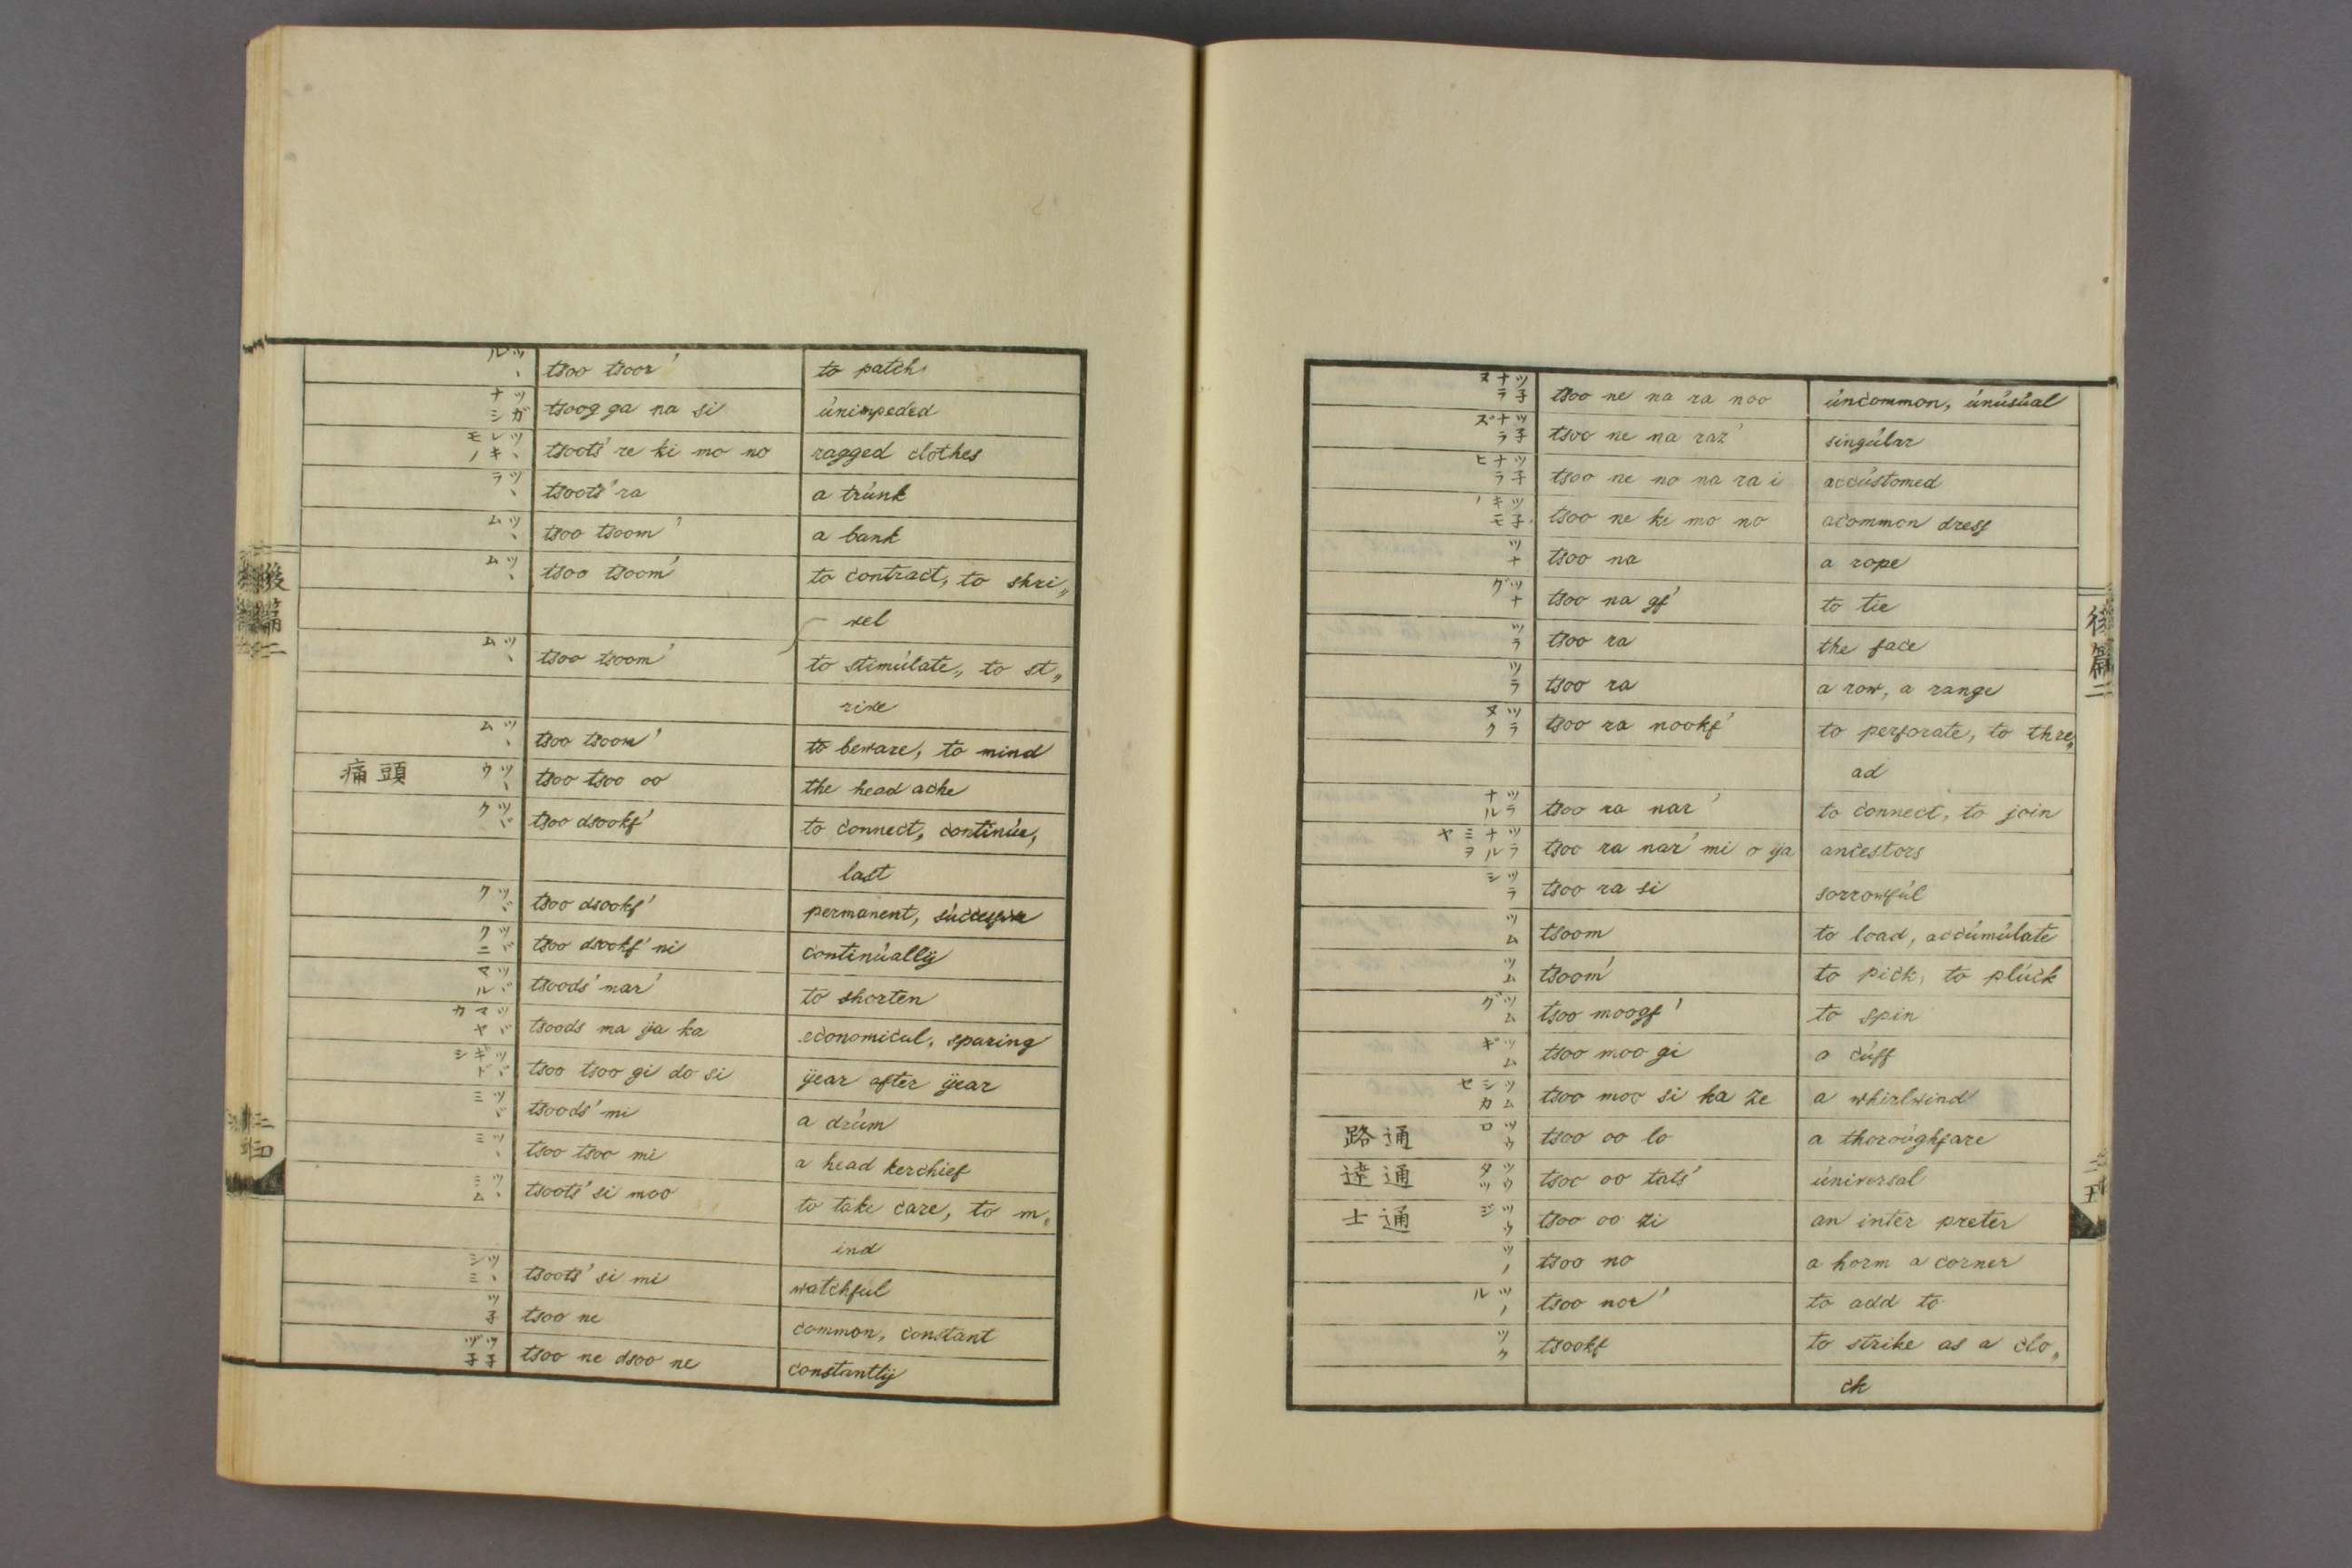 ツヽル tsoo tsoor' to patch
ツガナシ tsoog ga na si únimpeded
ツヽレキモノ tsoots' re ki mo no ragged clothes
ツヽラ tsoots' ra a trúnk
ツヽム tsoo tsoom' a bank
ツヽム tsoo tsoom' to contract, to shri〃
vel
ツヽム tsoo tsoom' to stimúlate, to st〃
rive
ツヽム tsoo tsoom' to beware, to mind
痛頭 ツヽウ tsoo tsoo oo the head ache
ツヾク tsoo dsookf' to connect, continúe,
last
ツヾク tsoo dsookf' permanent, súccessive
ツヾクニ tsoo dsookf' ni continúallÿ
ツヾマル tsoods' mar' to shorten
ツヾマヤカ tsoods ma ÿa ka economicul, sparing
ツヾギドシ tsoo tsoo gi do si ÿear after ÿear
ツヾミ tsoods' mi a drúm
ツヽミ tsoo tsoo mi a head kerchief
ツヽミム tsoots' si moo to take care, to m〃
ind
ツヽシミ tsoots' si mi watchfúl
ツ子 tsoo ne common, constant
ツ子ヅ子 tsoo ne dsoo ne constantlÿ
後篇二
ツ子ナラヌ tsoo ne na ra noo úncommon, únúsúal
ツ子ナラズ tsoo ne na raz' singúlar
ツ子ナラヒ tsoo ne no na ra i accústomed
ツ子キモノ tsoo ne ki mo no acommon dress
ツナ tsoo na a rope
ツナグ tsoo na gf' to tie
ツラ tsoo ra the face
ツラ tsoo ra a row, a range
ツラヌク tsoo ra nookf' to perforate, to thre〃
ad
ツラナル tsoo ra nar' to connect, to join
ツラナルミヲヤ tsoo ra nar' mi o ÿa ancestors
ツラシ tsoo ra si sorrowfúl
ツム tsoom to load, accúmúlate
ツム tsoom' to pick, to plúck
ツムグ tsoo moogf' to spin
ツムギ tsoo moo gi a cúff
ツムシカセ tsoo moo si ka ze a whirlwind
路通 ツウロ tsoo oo lo a thoroúghfare
達通 ツウタツ tsoo oo tats' úniversal
士通 ツウジ tsoo oo zi an inter preter
ツノ tsoo no a horm a corner
ツノル tsoo nor' to add to
ツク tsookf to strike as a clo〃
ck
後篇二